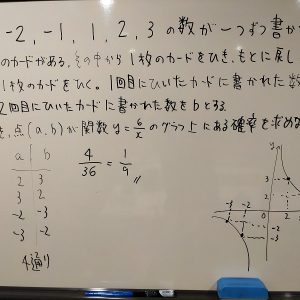 -2, -1, 1, 2, 3 の数が一つずつ書か
のカードがある。その中から1枚のカードをひき、もとに戻し
1枚のカードをひく。1回目にひいたカードに書かれた数
2回目にひいたカードに書かれた数をbとする。
き、点(a, b)が関数 y=6/x のグラフ上にある確率を求め
a b
2 3
3 2
-2 -3
-3 -2
4通り
4/36 = 1/9
y
-3 -2
2 3
-2
-3